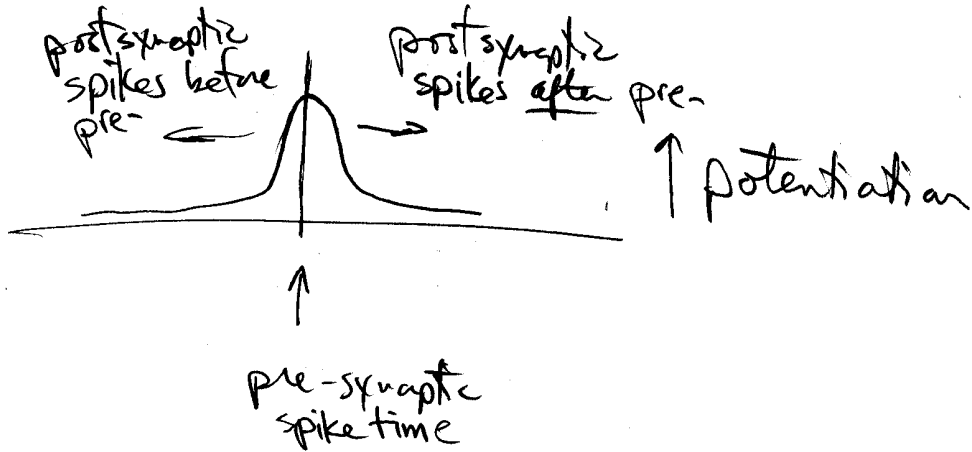 postsynaptic
spikes before
pre-
postsynaptic
spikes after pre-
potentiation
pre-synaptic
spike time